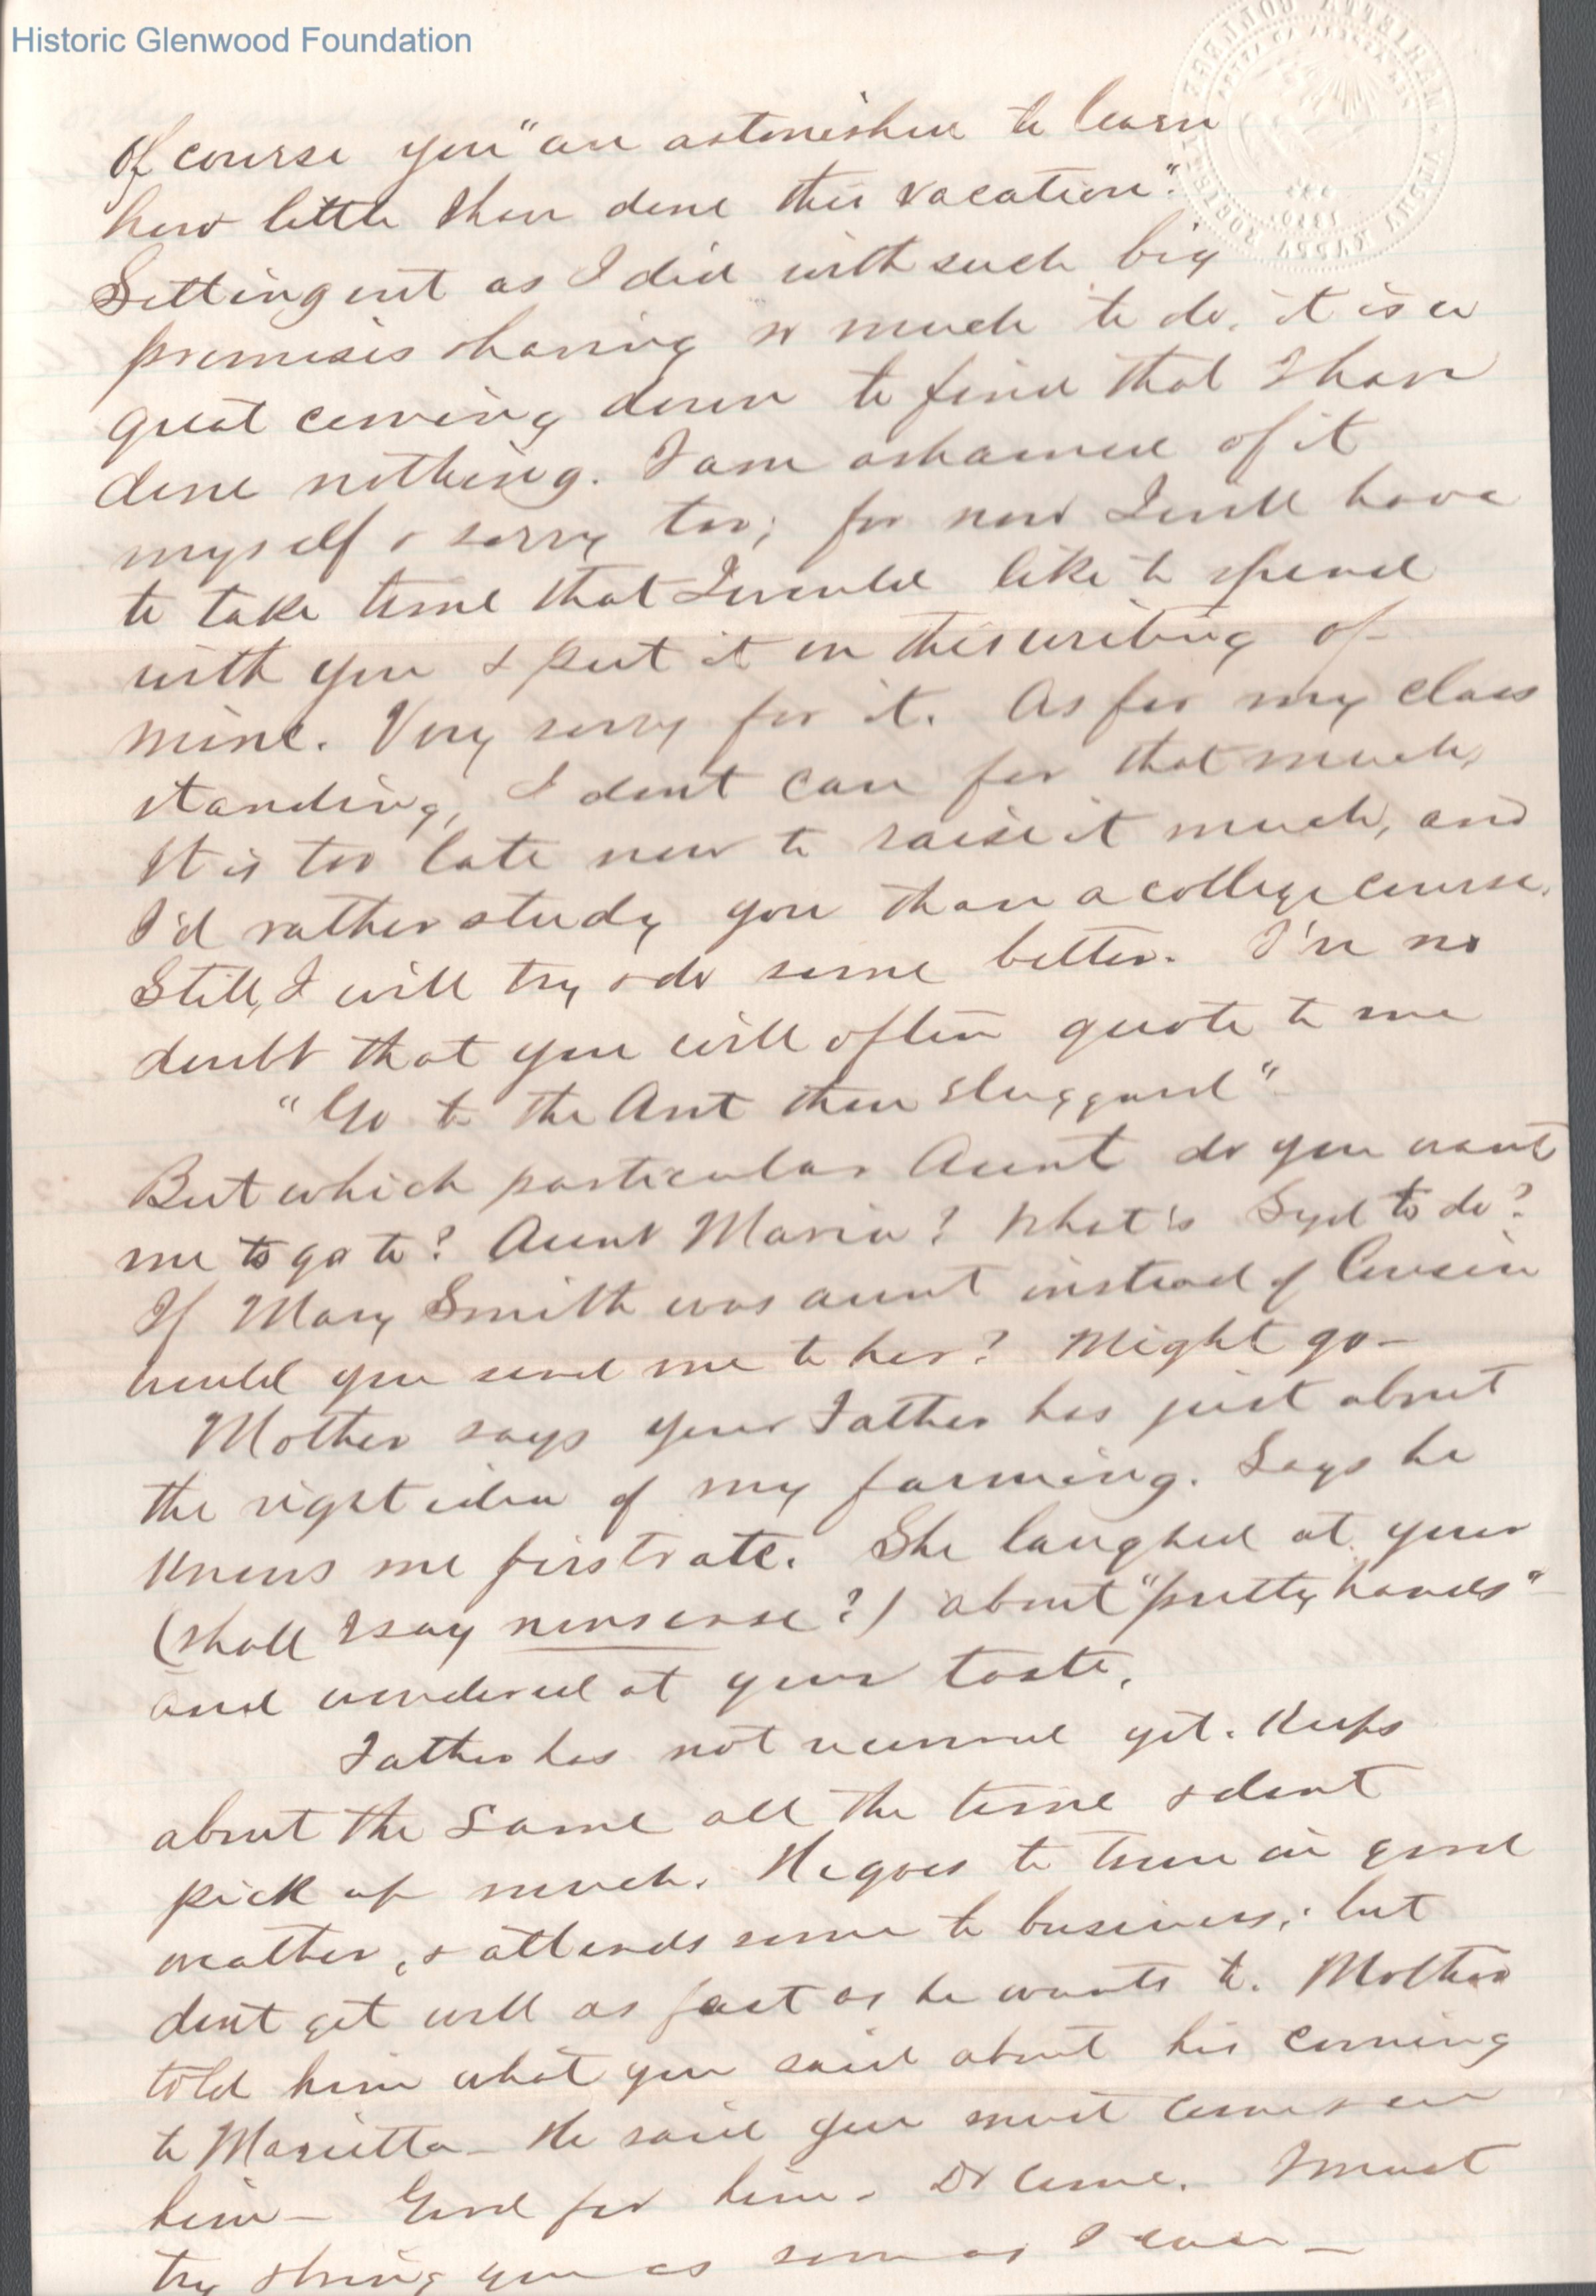 Historic Glenwood Foundation
MARIETTA COLLEGE
Of course you "are astonished to learn
how little I have done this vacation".
Setting out as I did with such big
promises & having so much to do, it is a
great coming down to find that I have
done nothing. I am ashamed of it
myself & sorry too; for now I will have
to take time that I would like to spend
with you & put it on this writing of
mine. Very sorry for it. As for my class
standing, I dont care for that much,
It is too late now to raise it much, and
I'd rather study you than a college course.
Still, I will try & do some better. I've no
doubt that you will often quote to me
"Go to the Ant thou sluggard"
But which particular Aunt do you want
me to go to? Aunt Maria? What's Syd to do?
If Mary Smith was aunt instead of Cousin
would you send me to her? Might go—
Mother says your Father has just about
the right idea of my farming. Says he
knows me firstrate. She laughed at your
(shall I say nonsense?) about "pretty hands"
and wondered at your taste.
Father has not recovered yet. Keeps
about the same all the time & dont
pick up much. He goes to town in good
weather, & attends some to business; but
dont get well as fast as he wants to. Mother
told him what you said about his coming
to Marietta— He said you must come & see
him— Good for him. Do come. I must
try & bring you as soon as I can—